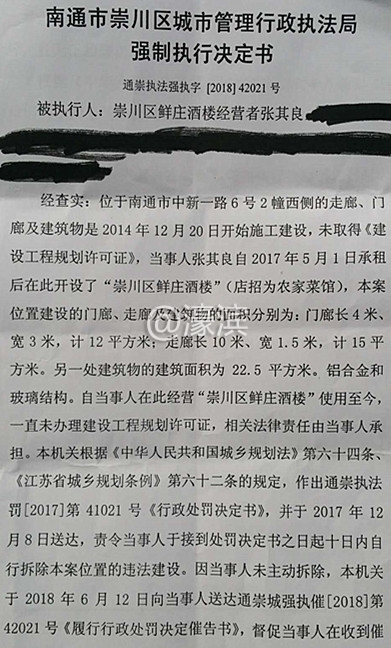 南通市崇川区城市管理行政执法局
强制执行决定书
通崇执法强执字 [2018] 42021 号
被执行人：崇川区鲜庄酒楼经营者张其良
经查实：位于南通市中新一路 6 号 2 幢西侧的走廊、门
廊及建筑物是 2014 年 12 月 20 日开始施工建设，未取得《建
设工程规划许可证》，当事人张其良自 2017 年 5 月 1 日承租
后在此开设了“崇川区鲜庄酒楼”（店招为农家菜馆），本案
位置建设的门廊、走廊及建筑物的面积分别为：门廊长 4 米、
宽 3 米，计 12 平方米；走廊长 10 米、宽 1.5 米，计 15 平
方米。另一处建筑物的建筑面积为 22.5 平方米。铝合金和
玻璃结构。自当事人在此经营“崇川区鲜庄酒楼”使用至今，
一直未办理建设工程规划许可证，相关法律责任由当事人承
担。本机关根据《中华人民共和国城乡规划法》第六十四条、
《江苏省城乡规划条例》第六十二条的规定，作出通崇执法
罚[2017]第 41021 号《行政处罚决定书》，并于 2017 年 12
月 8 日送达，责令当事人于接到处罚决定书之日起十日内自
行拆除本案位置的违法建设。因当事人未主动拆除，本机关
于 2018 年 6 月 12 日向当事人送达通崇城强执催[2018]第
42021 号《履行行政处罚决定催告书》，督促当事人在收到催
@濠滨